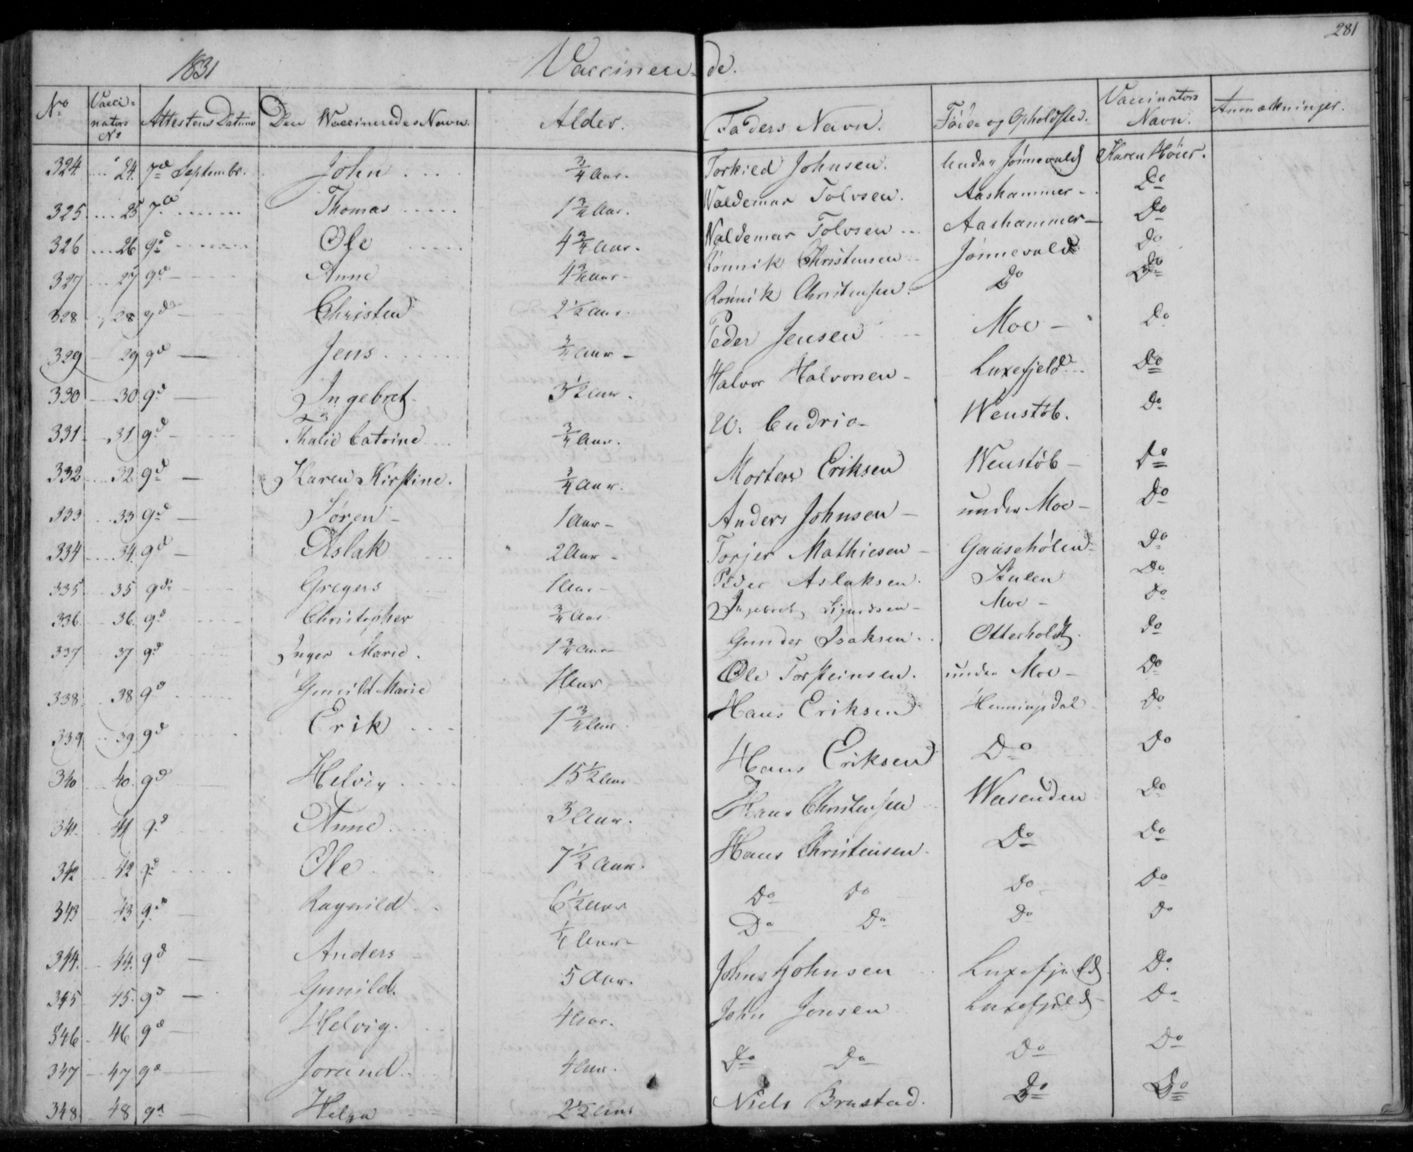 281
1831 Vaccineere-de.
No Vacci-nators No Attestens Datum Den Vaccineredes Navn. Alder. Faders Navn. Føde og Opholdsted. Vaccinators Navn. Anmærkninger.
324 24. 7de Septembr. John 3/4 Aar. Torkild Johnsen. under Jønnevald Karen Høier.
325 25 7de Thomas 1 3/4 Aar. Valdemar Tolvsen. Aashammer Do
326 26 9de Ole 4 3/4 Aar. Valdemar Tolvsen Aashammer Do
327 27 9de Anne 4 3/4 Aar Christensen Jønnevald Do
328 28 9de Christen 2 1/2 Aar Christensen. Do Do
329 29 9de Jens 3/4 Aar Peder Jensen Moe Do
330 30 9de Ingebret 3 1/2 Aar. Halvor Halvorsen Luxefjeld Do
331 31 9de Thalie Catrine 3/4 Aar. W. Cudrio Wenstøb. Do
332 32 9de Karen Kirstine. 3/4 Aar. Morten Eriksen Wenstøb Do
333 33 9de Søren 1 Aar Anders Johnsen under Moe Do
334 34 9de Aslak 2 Aar Torjer Mathiesen Gaaseholen Do
335 35 9de Gregers 1 Aar Peder Aslaksen. Do
336 36 9de Christopher 3/4 Aar Ingebret Moe Do
337 37 9de Inger Marie. 1 3/4 Aar Gunder Isaksen Otterholdt. Do
338 38 9de Gunild Marie 1 Aar Ole Torsteinsen. under Moe Do
339 39 9de Erik 1 3/4 Aar Hans Eriksen Henningsdal Do
340 40 9de Helvig 15 1/2 Aar Hans Eriksen Do Do
341 41 9de Anne 3 Aar. Hans Christensen Do
342 42 9de Ole 7 1/2 Aar. Hans Christensen Do Do
343 43 9de Ragnild 6 1/2 Aar Do Do Do Do
344 44 9de Anders Aar Do Do Do Do
345 45 9de Gunild 5 Aar. Johnsen Luxefjeld Do
346 46 9de Helvig. 4 Aar. John Jensen Luxefjeld Do
347 47 9de Jorand 4 Aar. Do Do Do Do
348 48 9de Helga 2 1/2 Aar Niels Brustad. Do Do